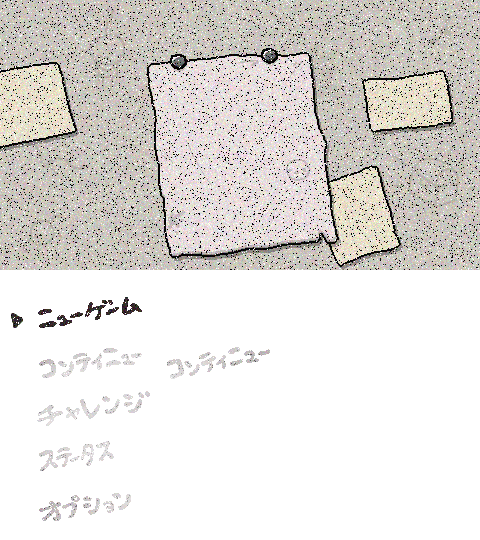 ニューゲーム
コンティニュー コンティニュー
チャレンジ
ステータス
オプション